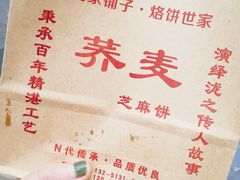 家铺子·烙饼世家
秉承百年精湛工艺
荞麦
芝麻饼
演绎泷之传人故事
N代传承·品质优良